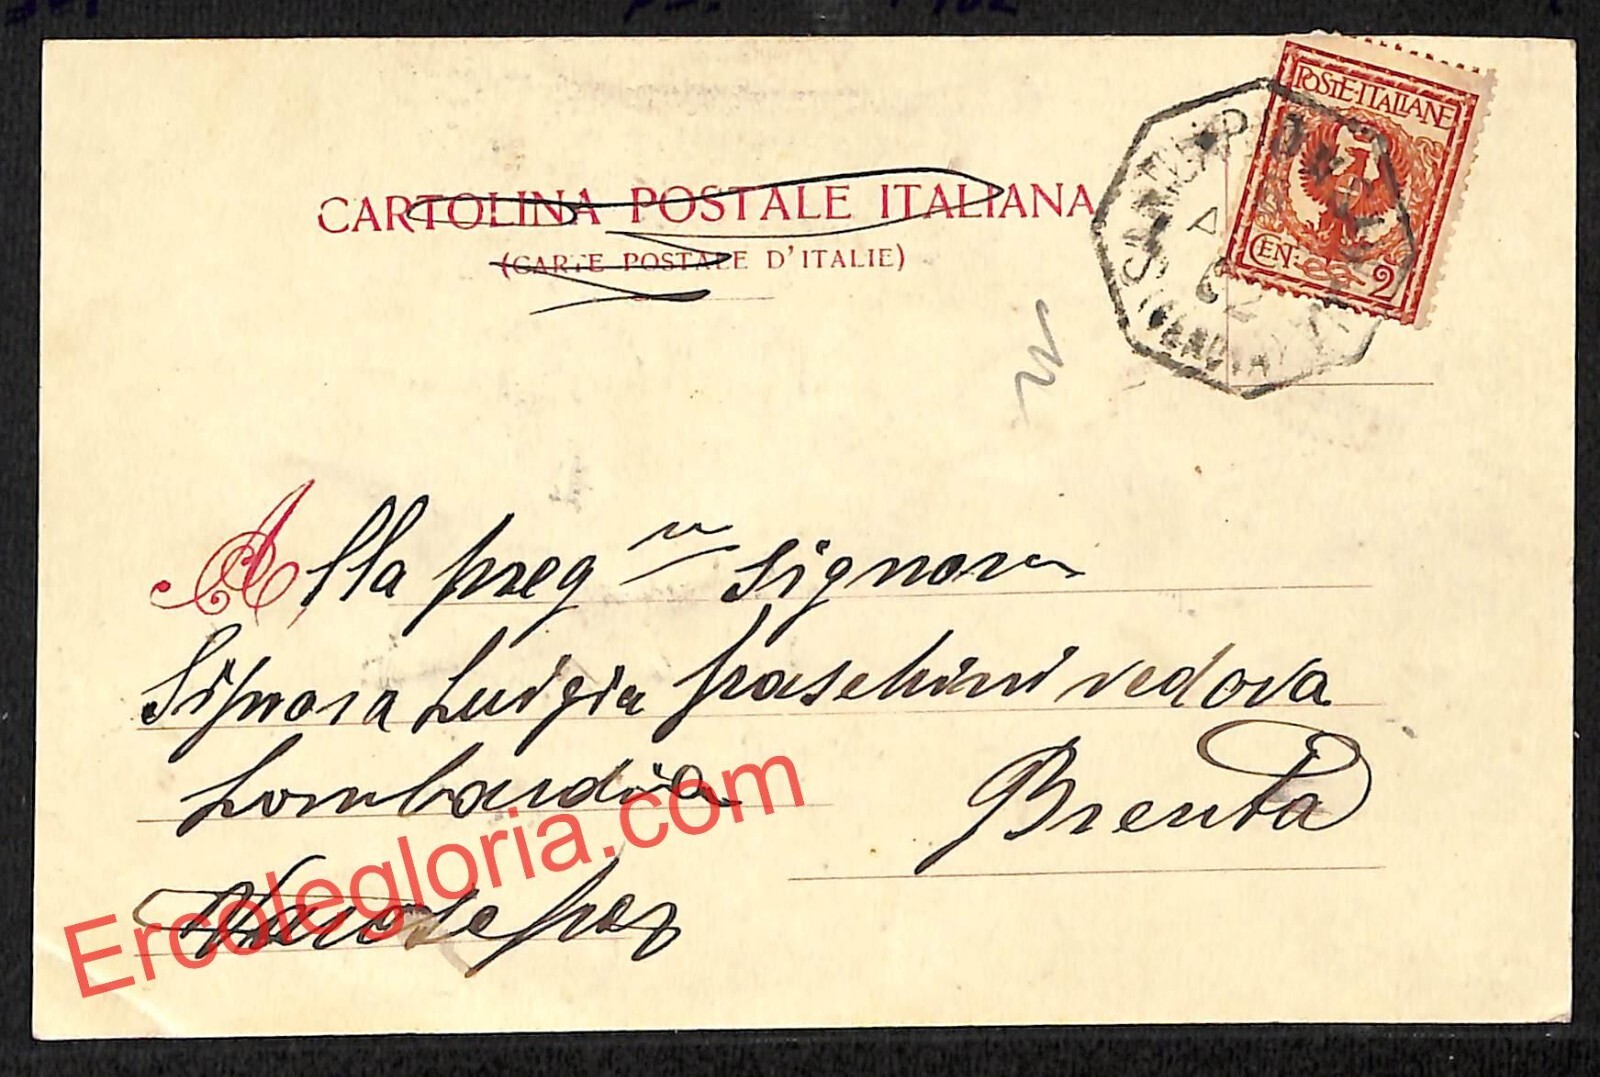 CARTOLINA POSTALE ITALIANA
(CARTE POSTALE D'ITALIE)
POSTE·ITALIANE
CEN: 2
Alla preg ma Signora
Signora Luigia Fraschini vedova
Lombardia Brenta
Varese per
Ercolegloria.com